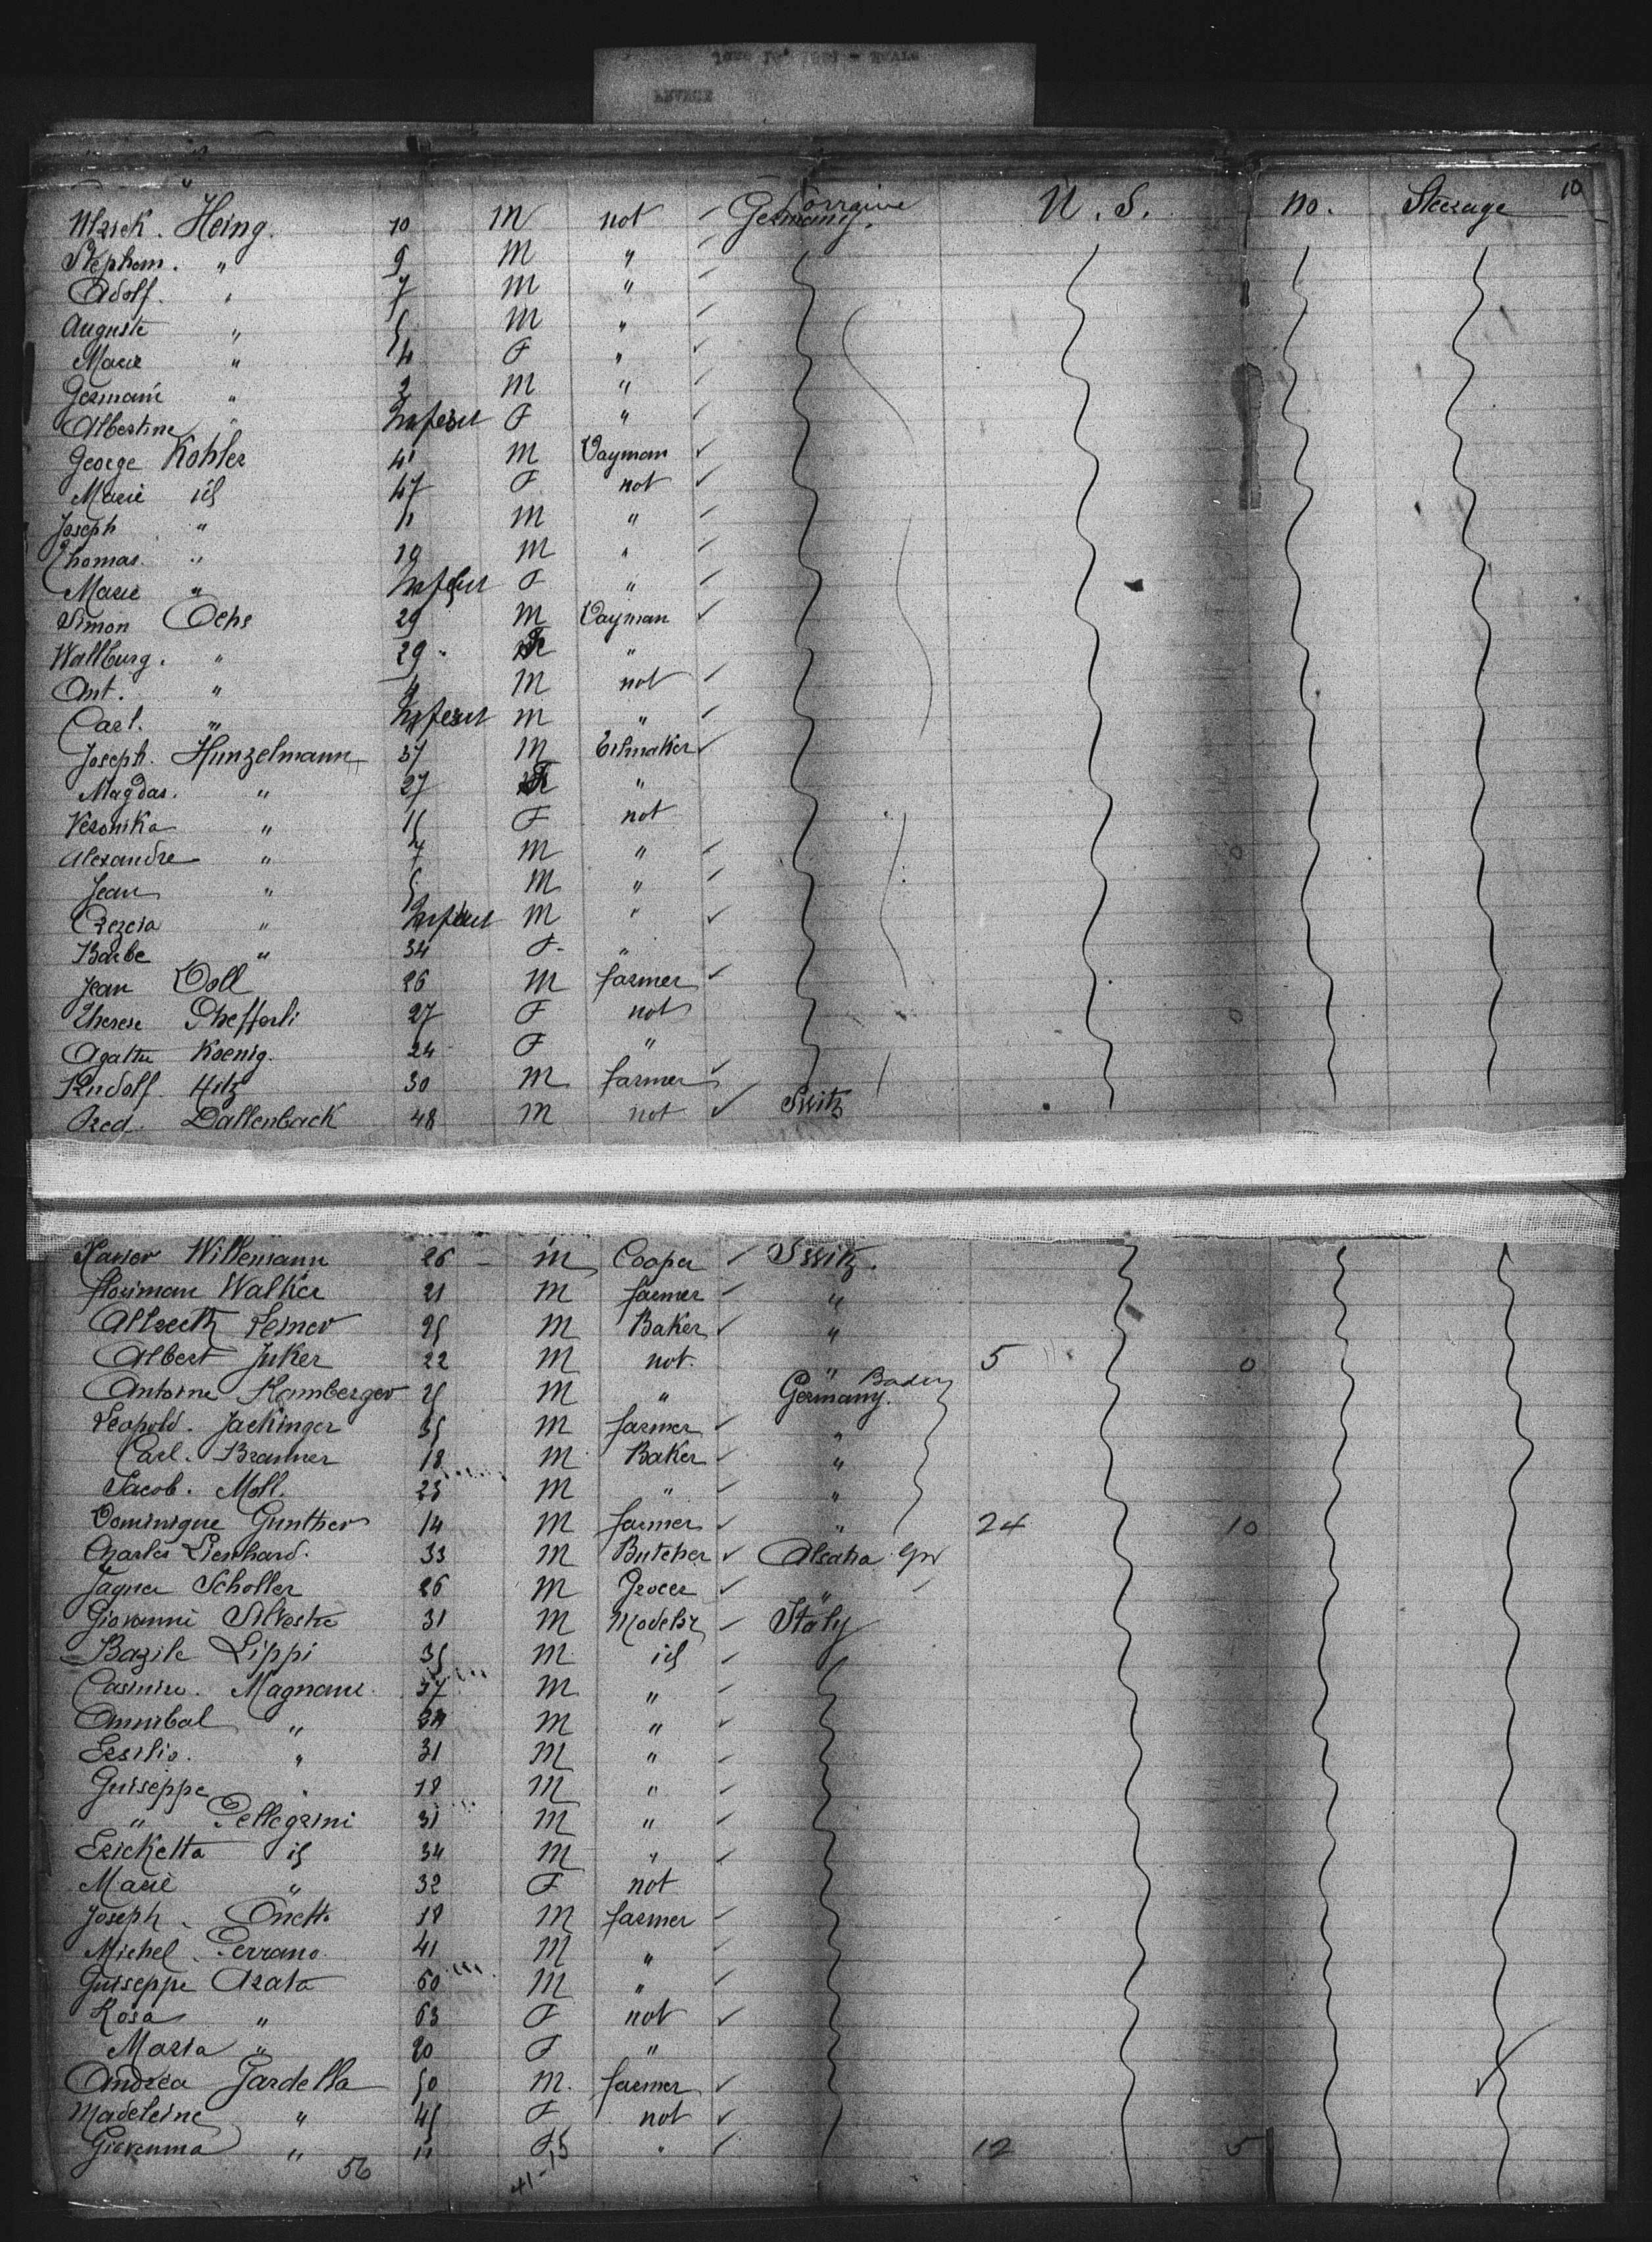 10
Ulrich. Heing. 10 M not ✓ Lorraine Germany. U. S. no. Steerage
Stephan. " 9 M " ✓
Adolf. " 7 M " ✓
Auguste " 5 M " ✓
Marie " 4 F " ✓
Germain " 2 M " ✓
Albertine " Infant F " ✓
George Kohler 41 M Dayman ✓
Marie id 47 F not ✓
Joseph " 11 M " ✓
Thomas. " 19 M " ✓
Marie " Infant F " ✓
Simon Ochs 29 M Dayman ✓
Wallburg. " 29 F "
Ant. " 4 M not ✓
Carl. " Infant M " ✓
Joseph. Hunzelmann 37 M ✓
Magdas. " 27 F "
Veronika " 15 F not
Alexandre " 7 M " ✓
Jean " 5 M " ✓
" Infant M " ✓
Barbe " 34 F. "
Jean Doll 26 M farmer ✓
Therese Pheffarli 27 F not
Agathe Koenig. 24 F "
Rudolf. Hitz 30 M farmer ✓
Fred. Dallenback 48 M not ✓ Switz
Xavier Willemann 26 M Cooper ✓ Switz.
Floriman Walker 21 M farmer ✓ "
25 M Baker ✓ "
Albert Juker 22 M not. " 5 0
Antoine Hamberger 25 M " Baden Germany.
Leopold. Jackinger 35 M farmer ✓ "
Carl. Brauner 18 M Baker ✓ "
Jacob. Moll. 23 M " ✓ "
Dominique Gunther 14 M farmer ✓ " 24 10
Charles Lienhard. 33 M Butcher ✓ Alsatia
Scholler 26 M Grocer ✓ "
Giovanni Silvestre 31 M Modelir ✓ Italy
Bazile Lippi 35 M id ✓
Casimire. Magnani 37 M " ✓
Annibal " M " ✓
Ersilio. " 31 M " ✓
Guiseppe " 18 M " ✓
" Pellegrini 31 M " ✓
Ericketta id 34 M " ✓
Marie " 32 F not
Joseph. Onetto 18 M farmer ✓
Michel Perrano. 41 M " ✓
Guiseppe Arata 60 M " ✓
Rosa " 63 F not ✓
Maria " 20 F "
Andrea Gardella 50 M. farmer ✓
Madeleine " 45 F not ✓
Giovanna " 11 F " ✓ 12 5
56 41-15